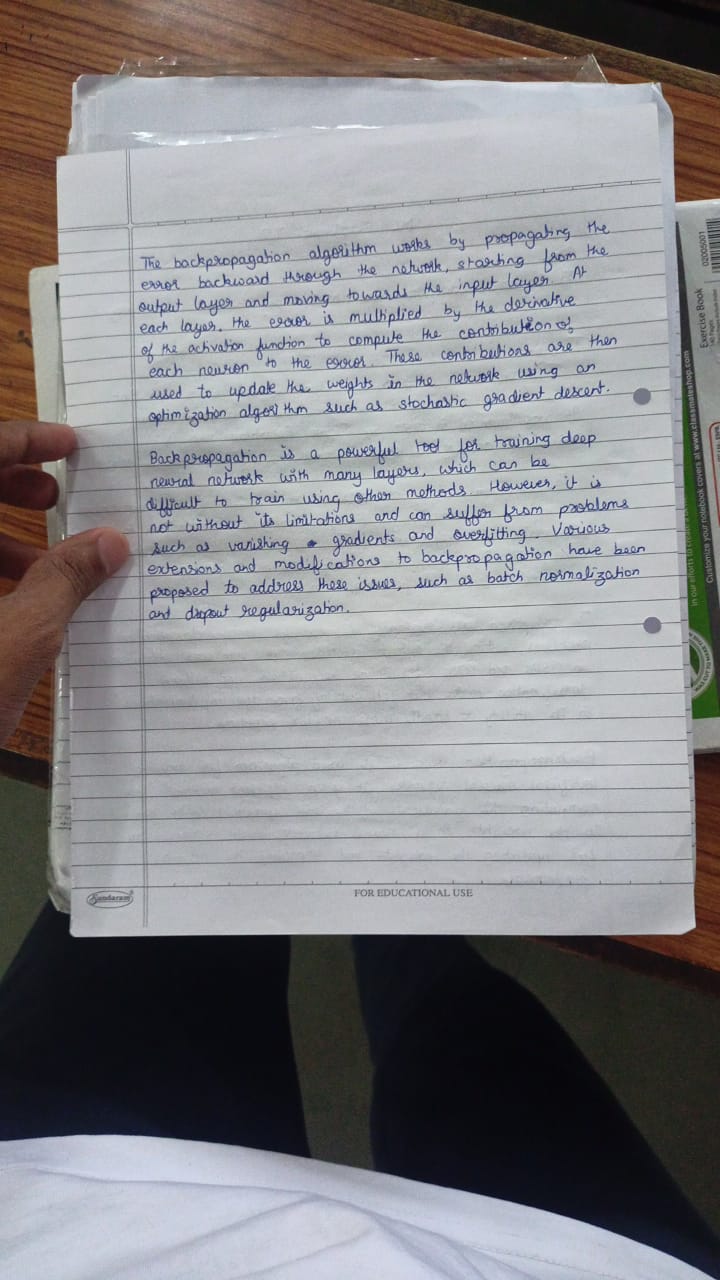 The backpropagation algorithm works by propagating the
error backward through the network, starting from the
output layer and moving towards the input layer. At
each layer, the error is multiplied by the derivative
of the activation function to compute the contribution of
each neuron to the error. These contributions are then
used to update the weights in the network using an
optimization algorithm such as stochastic gradient descent.
Backpropagation is a powerful tool for training deep
neural network with many layers, which can be
difficult to train using other methods. However, it is
not without its limitations and can suffer from problems
such as vanishing gradients and overfitting. Various
extensions and modifications to backpropagation have been
proposed to address these issues, such as batch normalization
and dropout regularization.
Sundaram
FOR EDUCATIONAL USE
02005001
Exercise Book
Customize your notebook covers at www.classmateshop.com